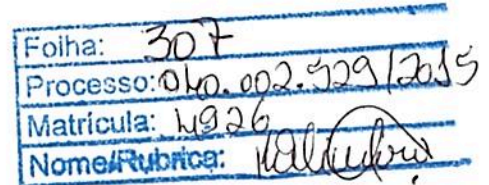 Folha: 307
Processo: 040.002.529/2015
Matrícula: 4926
Nome/Rubrica: